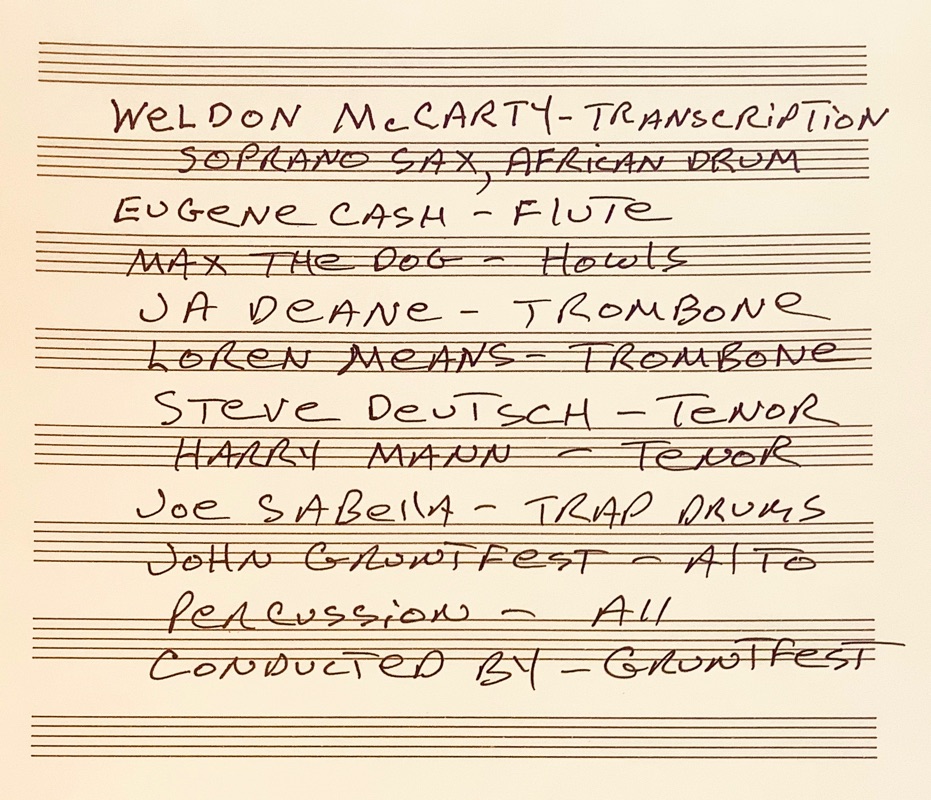 WeLDON McCARTY - TRANSCRiPTiON
SOPRANO SAX, AFRiCAN DRUM
EUGeNe CASH - FlUTe
MAX THe DOG - Howls
JA DeANe - TROMBONe
LOReN MeANS - TROMBONe
STeVe DeUTSCH - TeNOR
HARRY MANN - TeNOR
Joe SABellA - TRAP DRUMS
JOHN GRUNTFeST - AlTO
PeRCUSSiON - All
CONDUCTeD BY - GRUNTFeST